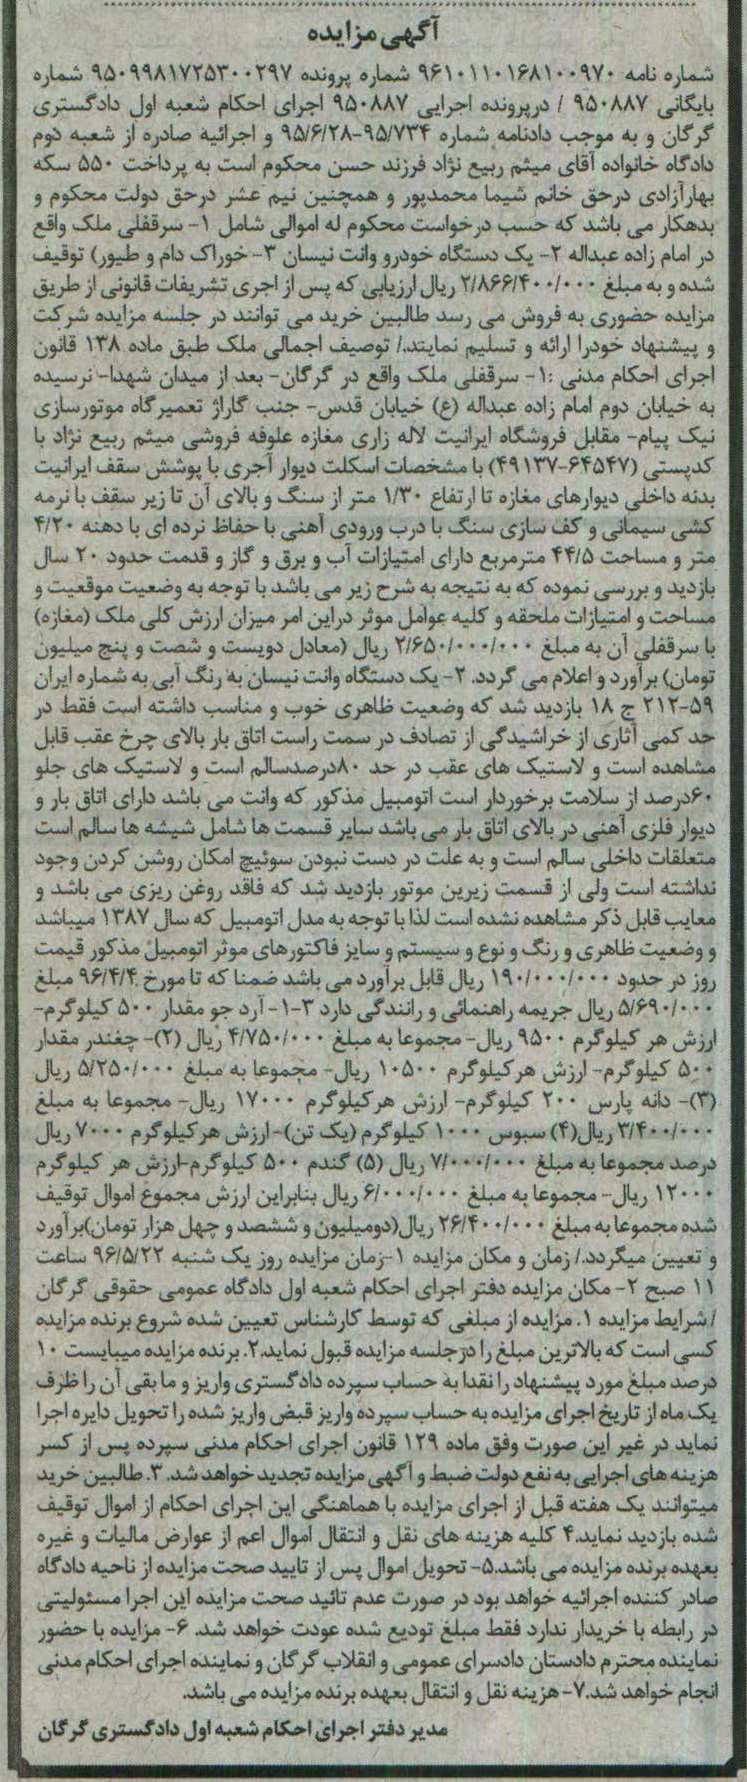 آگهی مزایده
شماره نامه ۹۶۱۰۱۱۰۱۶۸۱۰۰۹۷۰ شماره پرونده ۹۵۰۹۹۸۱۷۲۵۳۰۰۲۹۷ شماره
بایگانی ۹۵۰۸۸۷ / درپرونده اجرایی ۹۵۰۸۸۷ اجرای احکام شعبه اول دادگستری
گرگان و به موجب دادنامه شماره ۹۵/۷۳۴-۹۵/۶/۲۸ و اجرائیه صادره از شعبه دوم
دادگاه خانواده آقای میثم ربیع نژاد فرزند حسن محکوم است به پرداخت ۵۵۰ سکه
بهارآزادی درحق خانم شیما محمدپور و همچنین نیم عشر درحق دولت محکوم و
بدهکار می باشد که حسب درخواست محکوم له اموالی شامل ۱- سرقفلی ملک واقع
در امام زاده عبداله ۲- یک دستگاه خودرو وانت نیسان ۳- خوراک دام و طیور) توقیف
شده و به مبلغ ۲/۸۶۶/۴۰۰/۰۰۰ ریال ارزیابی که پس از اجری تشریفات قانونی از طریق
مزایده حضوری به فروش می رسد طالبین خرید می توانند در جلسه مزایده شرکت
و پیشنهاد خودرا ارائه و تسلیم نمایند./ توصیف اجمالی ملک طبق ماده ۱۳۸ قانون
اجرای احکام مدنی :۱- سرقفلی ملک واقع در گرگان- بعد از میدان شهدا- نرسیده
به خیابان دوم امام زاده عبداله (ع) خیابان قدس- جنب گاراژ تعمیرگاه موتورسازی
نیک پیام- مقابل فروشگاه ایرانیت لاله زاری مغازه علوفه فروشی میثم ربیع نژاد با
کدپستی (۶۴۵۴۷-۴۹۱۳۷) با مشخصات اسکلت دیوار آجری با پوشش سقف ایرانیت
بدنه داخلی دیوارهای مغازه تا ارتفاع ۱/۳۰ متر از سنگ و بالای آن تا زیر سقف با نرمه
کشی سیمانی و کف سازی سنگ با درب ورودی آهنی با حفاظ نرده ای با دهنه ۴/۲۰
متر و مساحت ۴۴/۵ مترمربع دارای امتیازات آب و برق و گاز و قدمت حدود ۲۰ سال
بازدید و بررسی نموده که به نتیجه به شرح زیر می باشد با توجه به وضعیت موقعیت و
مساحت و امتیازات ملحقه و کلیه عوامل موثر دراین امر میزان ارزش کلی ملک (مغازه)
با سرقفلی آن به مبلغ ۲/۶۵۰/۰۰۰/۰۰۰ ریال (معادل دویست و شصت و پنج میلیون
تومان) برآورد و اعلام می گردد. ۲- یک دستگاه وانت نیسان به رنگ آبی به شماره ایران
۵۹-۲۱۲ ج ۱۸ بازدید شد که وضعیت ظاهری خوب و مناسب داشته است فقط در
حد کمی آثاری از خراشیدگی از تصادف در سمت راست اتاق بار بالای چرخ عقب قابل
مشاهده است و لاستیک های عقب در حد ۸۰درصدسالم است و لاستیک های جلو
۶۰درصد از سلامت برخوردار است اتومبیل مذکور که وانت می باشد دارای اتاق بار و
دیوار فلزی آهنی در بالای اتاق بار می باشد سایر قسمت ها شامل شیشه ها سالم است
متعلقات داخلی سالم است و به علت در دست نبودن سوئیچ امکان روشن کردن وجود
نداشته است ولی از قسمت زیرین موتور بازدید شد که فاقد روغن ریزی می باشد و
معایب قابل ذکر مشاهده نشده است لذا با توجه به مدل اتومبیل که سال ۱۳۸۷ میباشد
و وضعیت ظاهری و رنگ و نوع و سیستم و سایز فاکتورهای موثر اتومبیل مذکور قیمت
روز در حدود ۱۹۰/۰۰۰/۰۰۰ ریال قابل برآورد می باشد ضمنا که تا مورخ ۹۶/۴/۴ مبلغ
۵/۶۹۰/۰۰۰ ریال جریمه راهنمائی و رانندگی دارد ۳-۱- آرد جو مقدار ۵۰۰ کیلوگرم-
ارزش هر کیلوگرم ۹۵۰۰ ریال- مجموعا به مبلغ ۴/۷۵۰/۰۰۰ ریال (۲)- چغندر مقدار
۵۰۰ کیلوگرم- ارزش هرکیلوگرم ۱۰۵۰۰ ریال- مجموعا به مبلغ ۵/۲۵۰/۰۰۰ ریال
(۳)- دانه پارس ۲۰۰ کیلوگرم- ارزش هرکیلوگرم ۱۷۰۰۰ ریال- مجموعا به مبلغ
۳/۴۰۰/۰۰۰ ریال(۴) سبوس ۱۰۰۰ کیلوگرم (یک تن)- ارزش هرکیلوگرم ۷۰۰۰ ریال
درصد مجموعا به مبلغ ۷/۰۰۰/۰۰۰ ریال (۵) گندم ۵۰۰ کیلوگرم-ارزش هر کیلوگرم
۱۲۰۰۰ ریال- مجموعا به مبلغ ۶/۰۰۰/۰۰۰ ریال بنابراین ارزش مجموع اموال توقیف
شده مجموعا به مبلغ ۲۶/۴۰۰/۰۰۰ ریال(دومیلیون و ششصد و چهل هزار تومان)برآورد
و تعیین میگردد./ زمان و مکان مزایده ۱-زمان مزایده روز یک شنبه ۹۶/۵/۲۲ ساعت
۱۱ صبح ۲- مکان مزایده دفتر اجرای احکام شعبه اول دادگاه عمومی حقوقی گرگان
/ شرایط مزایده ۱. مزایده از مبلغی که توسط کارشناس تعیین شده شروع برنده مزایده
کسی است که بالاترین مبلغ را درجلسه مزایده قبول نماید.۲. برنده مزایده میبایست ۱۰
درصد مبلغ مورد پیشنهاد را نقدا به حساب سپرده دادگستری واریز و ما بقی آن را ظرف
یک ماه از تاریخ اجرای مزایده به حساب سپرده واریز قبض واریز شده را تحویل دایره اجرا
نماید در غیر این صورت وفق ماده ۱۲۹ قانون اجرای احکام مدنی سپرده پس از کسر
هزینه های اجرایی به نفع دولت ضبط و آگهی مزایده تجدید خواهد شد. ۳. طالبین خرید
میتوانند یک هفته قبل از اجرای مزایده با هماهنگی این اجرای احکام از اموال توقیف
شده بازدید نماید.۴ کلیه هزینه های نقل و انتقال اموال اعم از عوارض مالیات و غیره
بعهده برنده مزایده می باشد.۵- تحویل اموال پس از تایید صحت مزایده از ناحیه دادگاه
صادر کننده اجرائیه خواهد بود در صورت عدم تائید صحت مزایده این اجرا مسئولیتی
در رابطه با خریدار ندارد فقط مبلغ تودیع شده عودت خواهد شد. ۶- مزایده با حضور
نماینده محترم دادستان دادسرای عمومی و انقلاب گرگان و نماینده اجرای احکام مدنی
انجام خواهد شد.۷- هزینه نقل و انتقال بعهده برنده مزایده می باشد.
مدیر دفتر اجرای احکام شعبه اول دادگستری گرگان